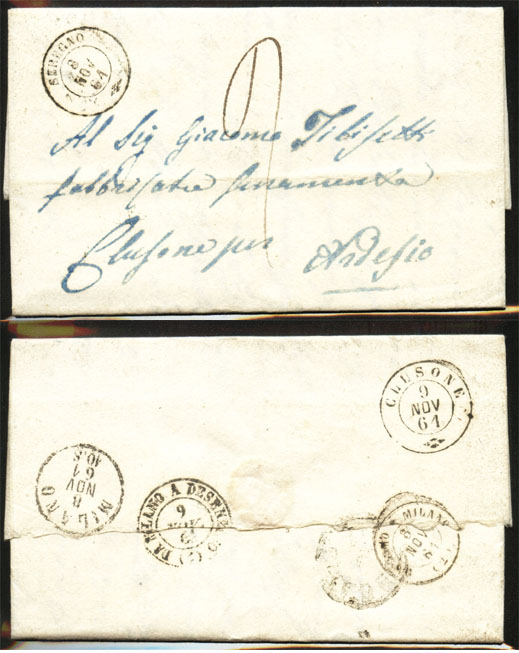 SEREGNO
8
NOV
61
2
Al Sig Giacomo Tibisetti
fabbricatore ferramenta
Clusone per Ardesio
CLUSONE
9
NOV
61
MILANO
8
NOV
61
10.S
DA MILANO A DESEN
9
MILANO
8
NOV
61
(2)